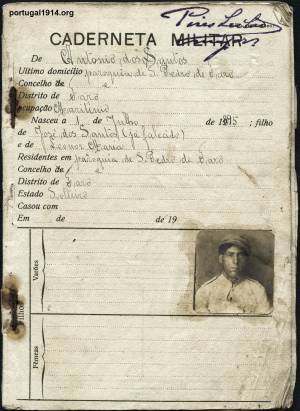 portugal1914.org
CADERNETA MILITAR
De Antonio dos Santos
Ultimo domicilio paroquia de S. Pedro de Faro
Concelho de
Distrito de Faro
Ocupação Maritimo
Nasceu a 1 de Julho de 1895; filho
de José dos Santos (já falecido)
e de Leonor Maria
Residentes em paroquia de S. Pedro de Faro
Concelho de
Distrito de Faro
Estado Solteiro
Casou com
Em de de 19
Filhos
Varões
Fêmeas